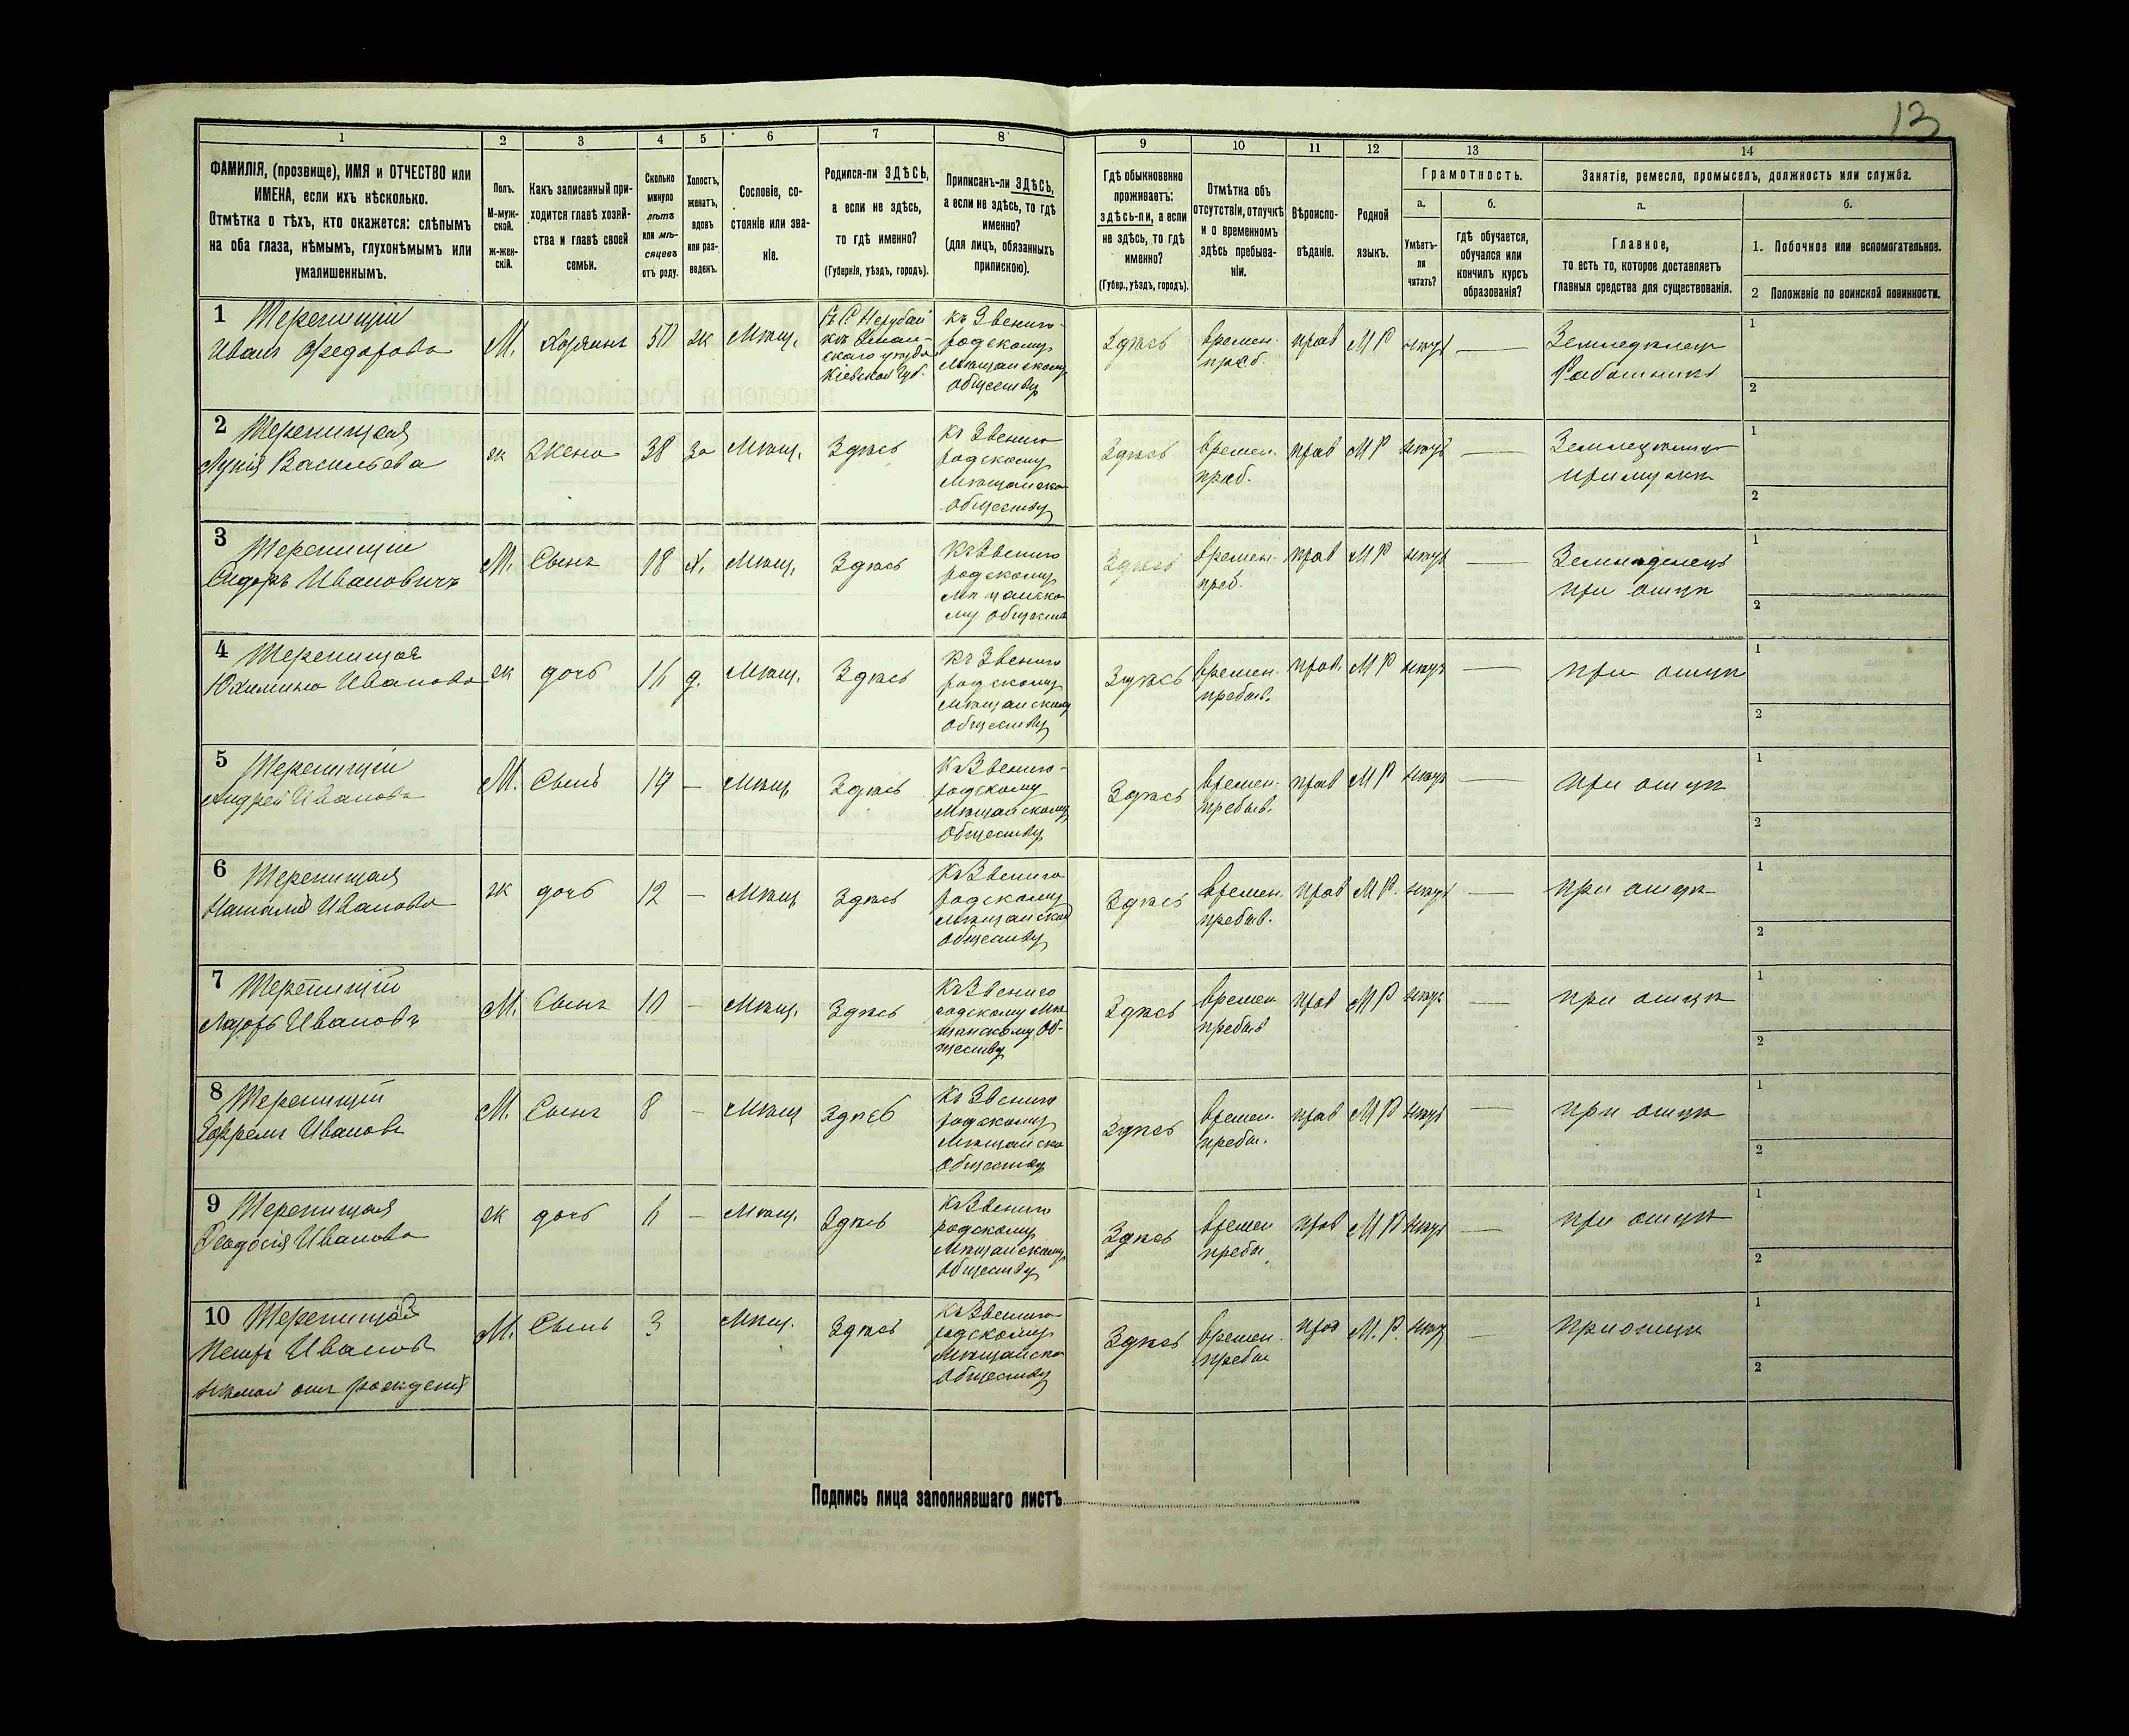 13
1
2
3
4
5
6
7
8
9
10
11
12
13
14
ФАМИЛІЯ, (прозвище), ИМЯ и ОТЧЕСТВО или
ИМЕНА, если ихъ нѣсколько.
Отмѣтка о тѣхъ, кто окажется: слѣпымъ
на оба глаза, нѣмымъ, глухонѣмымъ или
умалишеннымъ.
Полъ.
М-муж-
ской.
ж-жен-
скій.
Какъ записанный при-
ходится главѣ хозяй-
ства и главѣ своей
семьи.
Сколько
минуло
лѣтъ
или мѣ-
сяцевъ
отъ роду.
Холостъ,
женатъ,
вдовъ
или раз-
веденъ.
Сословіе, со-
стояніе или зва-
ніе.
Родился-ли ЗДѢСЬ,
а если не здѣсь,
то гдѣ именно?
(Губернія, уѣздъ, городъ).
Приписанъ-ли ЗДѢСЬ,
а если не здѣсь, то гдѣ
именно?
(для лицъ, обязанныхъ
припискою).
Гдѣ обыкновенно
проживаетъ:
здѣсь-ли, а если
не здѣсь, то гдѣ
именно?
(Губер., уѣздъ, городъ).
Отмѣтка объ
отсутствіи, отлучкѣ
и о временномъ
здѣсь пребыва-
ніи.
Вѣроиспо-
вѣданіе.
Родной
языкъ.
Грамотность.
а.
Умѣетъ-
ли
читать?
б.
гдѣ обучается,
обучался или
кончилъ курсъ
образованія?
Занятіе, ремесло, промыселъ, должность или служба.
а.
Главное,
то есть то, которое доставляетъ
главныя средства для существованія.
б.
1. Побочное или вспомогательное.
2 Положеніе по воинской повинности.
1
Иванъ Федорова
М. Хозяинъ 50 ж Мѣщ.
Кіевской Губ.
къ Звениго-
родскому
Мѣщанскому
обществу
Здѣсь
времен.
преб.
прав М Р неум —
Земледѣлец
Работникъ
1
2
2
Лукія Васильева
ж Жена 38 за Мѣщ. Здѣсь
къ Звениго
родскому
Мѣщанско
обществу
Здѣсь
времен.
преб.
прав М Р неум —
при мужѣ
1
2
3
Сидоръ Ивановичъ
М. Сынъ 18 х. Мѣщ. Здѣсь
къ Звениго
родскому
мѣщанско
му обществ
Здѣсь
времен.
преб.
прав М Р неум —
Земледѣлецъ
при отцѣ
1
2
4
Ивановa
ж дочь 16 д. Мѣщ. Здѣсь
къ Звениго
родскому
Мѣщанскому
обществу
Здѣсь
времен.
пребыв.
прав. М Р неум —
при отцѣ
1
2
5
Андрей Иванов
М. Сынъ 14 — Мѣщ. Здѣсь
къ Звениго-
родскому
Мѣщанскому
обществу
Здѣсь
времен.
пребыв.
прав М Р неум —
при отцѣ
1
2
6
Наталія Иванова
ж дочь 12 — Мѣщ Здѣсь
къ Звениго
родскому
мѣщанском
обществу
Здѣсь
времен.
пребыв.
прав М Р. неум —
при отцѣ
1
2
7
Лазарь Ивановъ
М. Сынъ 10 — Мѣщ. Здѣсь
къ Звениго
родскому мѣ
щанскому об-
ществу
Здѣсь
времен
пребыв
прав М Р неум —
при отцѣ
1
2
8
Ефремъ Иванов
М. Сынъ 8 — Мѣщ Здѣсь
къ Звениго
родскому
Мѣщанско
обществу
Здѣсь
времен.
пребы.
прав М Р неум —
при отцѣ
1
2
9
Феодосія Иванова
ж дочь 6 — Мѣщ. Здѣсь
къ Звениго
родскому
Мѣщанскому
обществу
Здѣсь
времен
пребы
прав М Р неум —
при отцѣ
1
2
10
Петръ Иванов
нѣмой отъ рожденія
М. Сынъ 3 Мѣщ. Здѣсь
къ Звениго
родскому
Мѣщанско
обществу
Здѣсь
времен.
пребы
прав М. Р. неум —
при отцѣ
1
2
Подпись лица заполнявшаго листъ